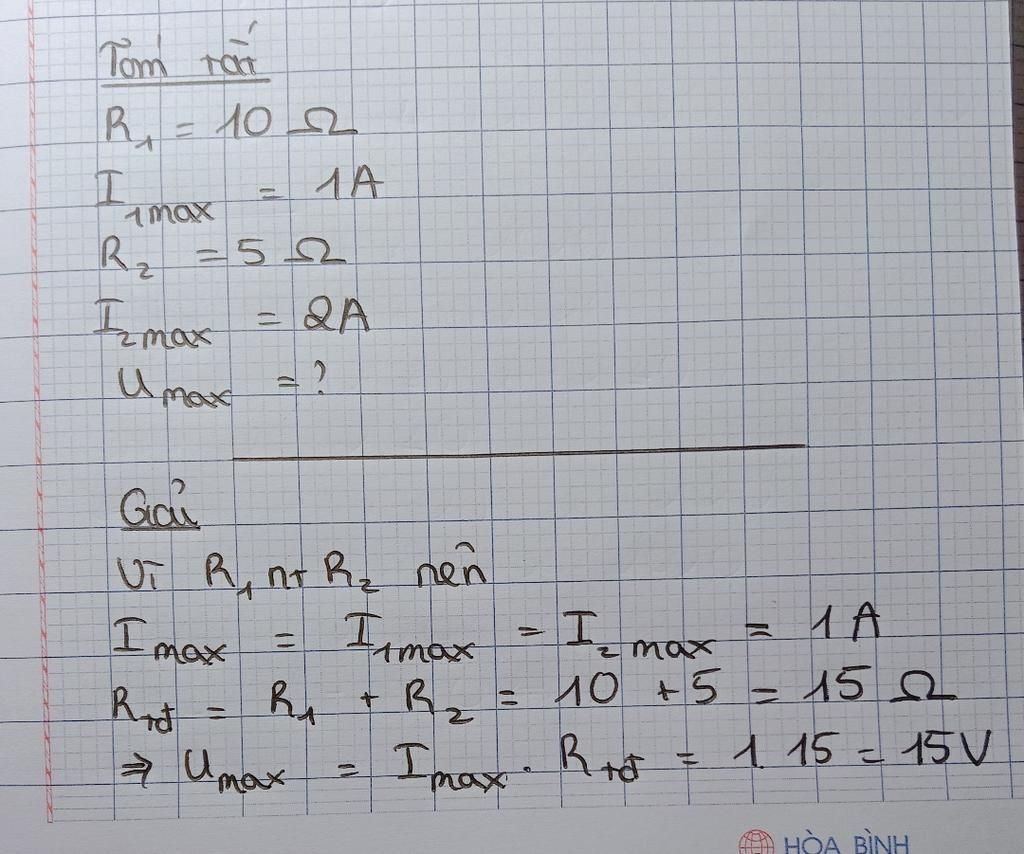 Tóm tắt
R₁ = 10 Ω
I₁max = 1A
R₂ = 5 Ω
I₂max = 2A
Umax = ?
Giải
Vì R₁ nt R₂ nên
Imax = I₁max = I₂max = 1A
Rtđ = R₁ + R₂ = 10 + 5 = 15 Ω
⇒ Umax = Imax . Rtđ = 1. 15 = 15V
HÒA BÌNH